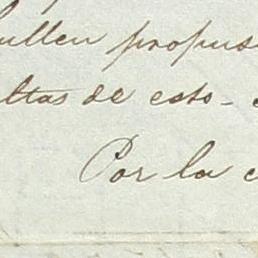 ullen propus
ltas de esto - 
Por la c